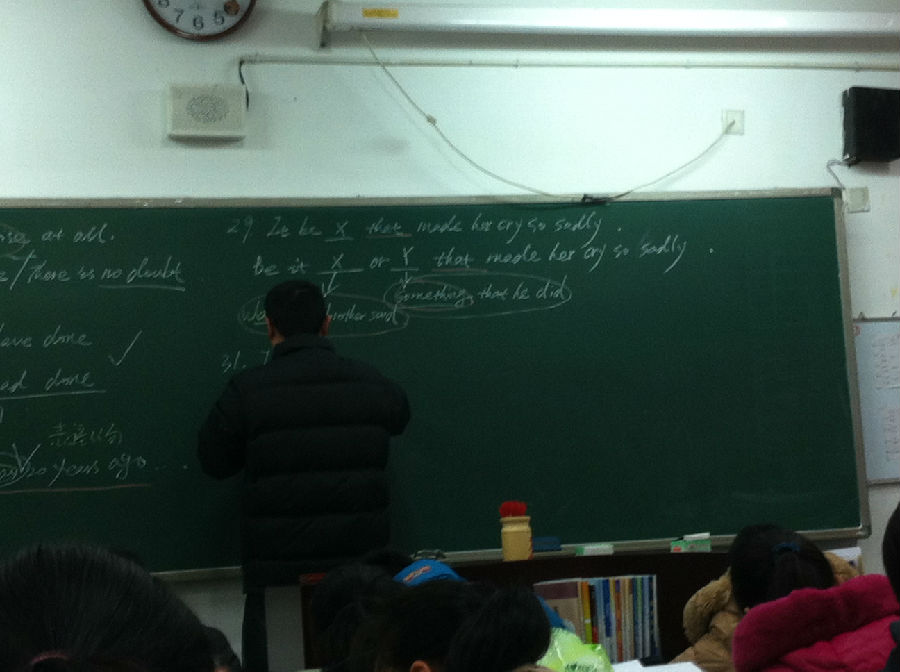 at all.
/There is no doubt
have done
had done
20 years ago ...
29. It be X that made her cry so sadly.
be it X or Y that made her cry so sadly.
brother said
something that he did
31.
7 6 5